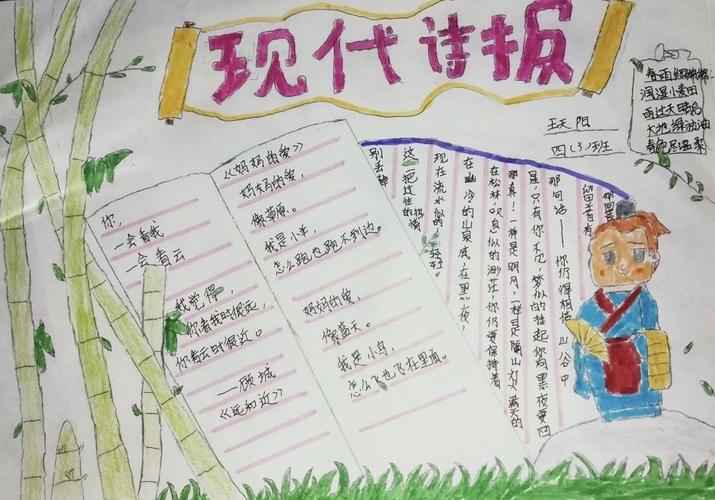 现代诗报
阳
四(3)班
润湿小麦田
雨过天晴后
大地绿油油
你,
一会看我
一会看云
我觉得,
你看我时很远,
你看云时很近。
——顾城
《远和近》
《妈妈的爱》
妈妈的爱,
像草原。
我是小羊,
怎么跑也跑不到边。
妈妈的爱,
像蓝天。
我是小鸟,
怎么飞也飞在里面。
别丢掉
这一把过往的热情
现在流水似的
轻轻
在幽冷的山泉底,在黑夜,
在松林,叹息似的渺茫,你仍要保持着
那真!一样是明月,一样是隔山灯火满天的
是,只有你不见,梦似的挂起你向黑夜要回
那句话——你仍得相信山谷中
那回音